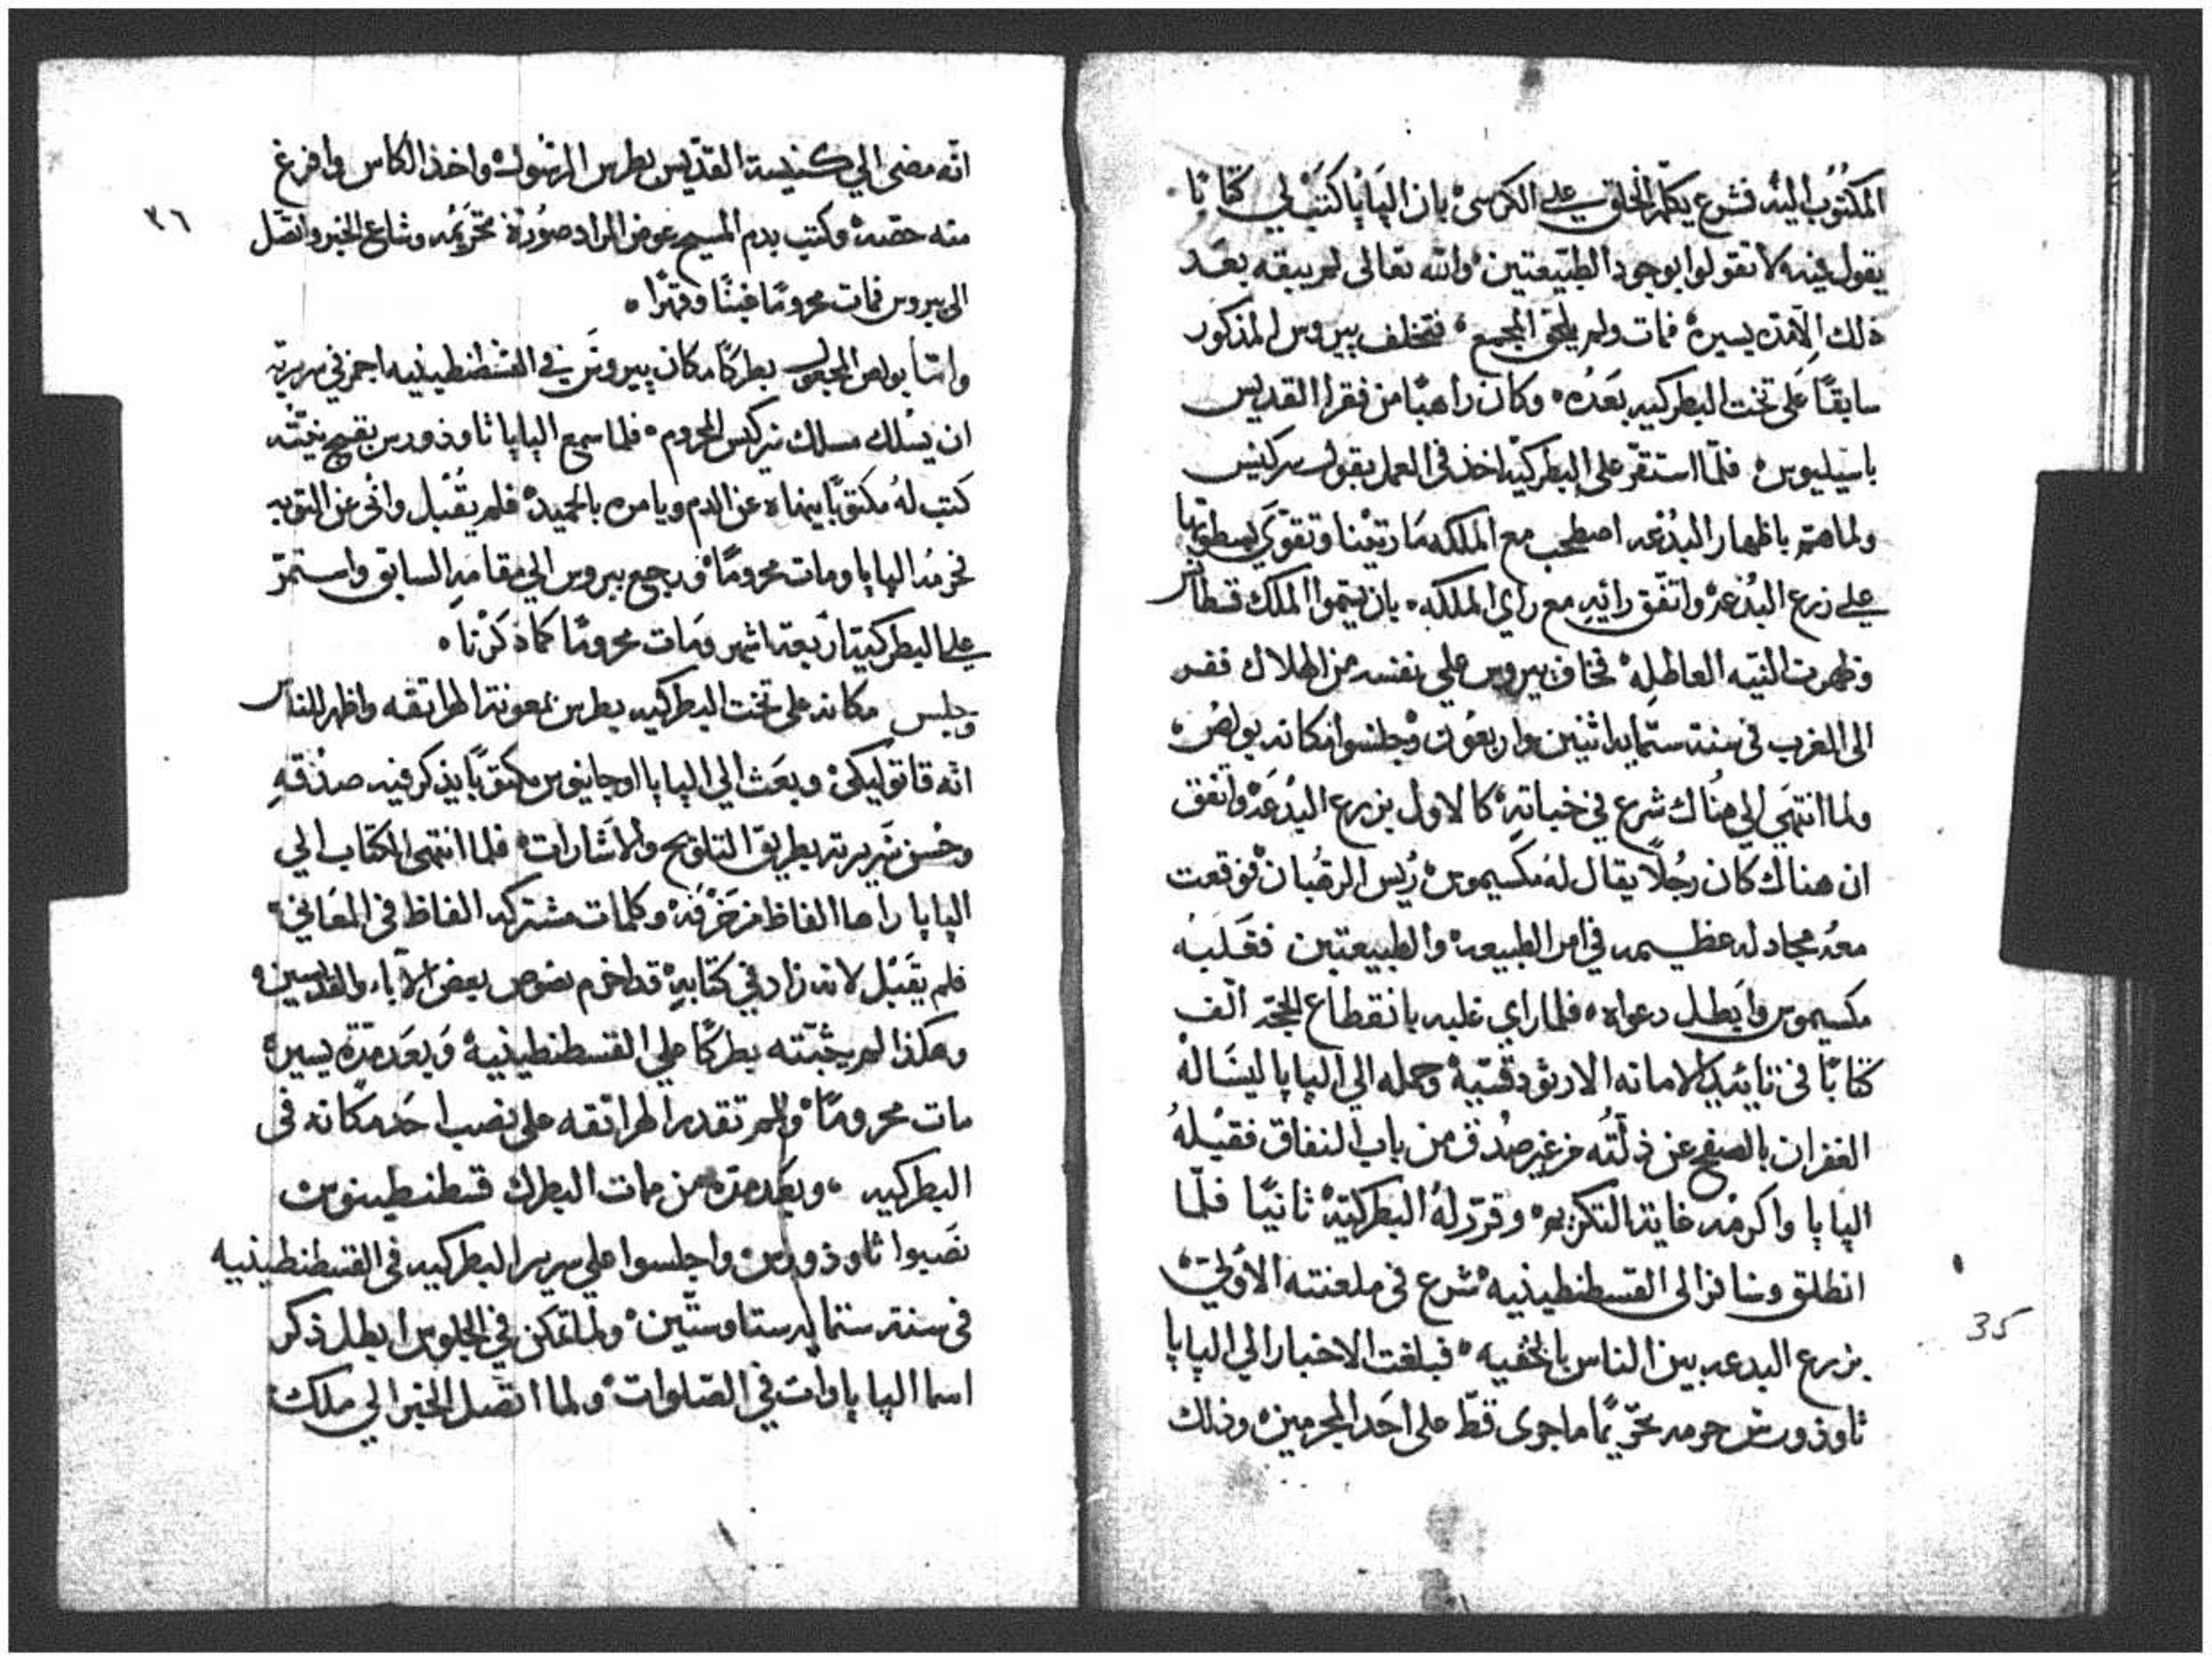 المكتوب اليه فشرع يكلم الخلق على الكرسي بان البابا كتب لي كتابا
يقول فيه لا تقولوا بوجود الطبيعتين والله تعالى لم يبقه بعد
ذلك الا مده يسيره فمات ولم يلحق المجمع فتخلف بيروس المذكور
سابقًا على تخت البطركيه بعده وكان راهبًا من فقرا القديس
باسيليوس فلما استقر على البطركيه اخذ في العمل بقول سركيس
ولما هتم باظهار البدعه اصطحب مع الملكه مارتينا وتقوي بسطوتها
على زرع البدعه واتفق رائيه مع راي الملكه بان يسموا الملك قسطاس
وظهرت النيه العاطله فخاف بيروس على نفسه من الهلاك ففر
الى الغرب في سنة ستمايه اثنين واربعون وجلسوا مكانه بولص
ولما انتهى الي هناك شرع في خباته كالاول بزرع البدعه واتفق
ان هناك كان رجلًا يقال له مكسيموس ريس الرهبان فوقعت
معه مجادله عظيمه في امر الطبيعه والطبيعتين فغلبه
مكسيموس وابطل دعواه فلما راي غلبه بانقطاع الحجه الف
كتابًا في تائييد الامانه الارثودقسيه وحمله الي البابا ليساله
الغفران بالصفح عن ذلته من غير صدق من باب النفاق فقبله
البابا واكرمه غاية التكريم وقرر له البطركيه ثانيًا فلما
انطلق وسافر الى القسطنطينيه شرع في ملعنته الاولي
بزرع البدعه بين الناس بالخفيه فبلغت الاخبار الي البابا
ثاوذورس حرمه تحريمًا ما جرى قط على احد المجرمين وذلك
35
انه مضى الي كنيسة القديس بطرس الرسول واخذ الكاس وافرغ
منه حصه وكتب بدم المسيح عوض المداد صورة تحريمه وشاع الخبر واتصل
٣٦
الى بيروس فمات محرومًا غبنًا وقهرًا
واما بولص المجعول بطركًا مكان بيروس في القسطنطينيه اجمز في سريرته
ان يسلك مسلك سركيس المحروم فلما سمع البابا ثاوذورس بقبيح نيته
كتب له مكتوبًا ينهاه عن الدم ويامره بالحميده فلم يقبل وانى عن التوبه
فحرمه البابا ومات محرومًا ورجع بيروس الي مقامه السابق واستمر
على البطركيه اربعة اشهر ومات محرومًا كما ذكرنا
وجلس مكانه على تخت البطركيه بطرس بمعونة الهراتقه واظهر للناس
انه قاتوليكي وبعث الي البابا اوجانيوس مكتوبًا يذكر فيه صدقه
وحسن سريرته بطريق التلويح والاشارات فلما انتهى الكتاب الي
البابا راها الفاظ مزخرفه وكلمات مشتركه الفاظ في المعاني
فلم يقبل لانه زاد في كتابه قد اخرم نصوص بعض الاباء والقديسين
وهكذا لم يثبته بطركًا على القسطنطينيه وبعد مدة يسيره
مات محرومًا ولم تقدر الهراتقه على نصب احد مكانه في
البطركيه وبعد مده من مات البطرك قسطنطينوس
نصبوا ثاوذورس واجلسوا على سرير البطركيه في القسطنطينيه
في سنة ستمايه ستا وستين ولما تمكن في الجلوس ابطل ذكر
اسما الباباوات في الصلوات ولما اتصل الخبر الي ملك